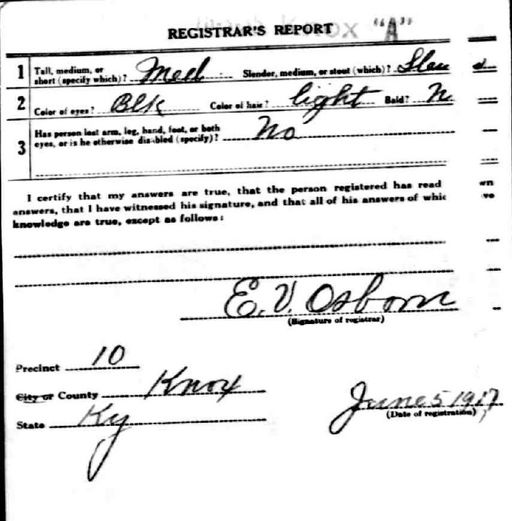 REGISTRAR'S REPORT "A"
1 Tall, medium, or short (specify which)? Med Slender, medium, or stout (which)?
2 Color of eyes? Blk Color of hair? light Bald? N
3 Has person lost arm, leg, hand, foot, or both
eyes, or is he otherwise disabled (specify)? No
I certify that my answers are true, that the person registered has read
answers, that I have witnessed his signature, and that all of his answers of whic
knowledge are true, except as follows:
E. V. Osborn
(Signature of registrar)
Precinct 10
City or County Knox
State Ky
June 5 1917
(Date of registration)